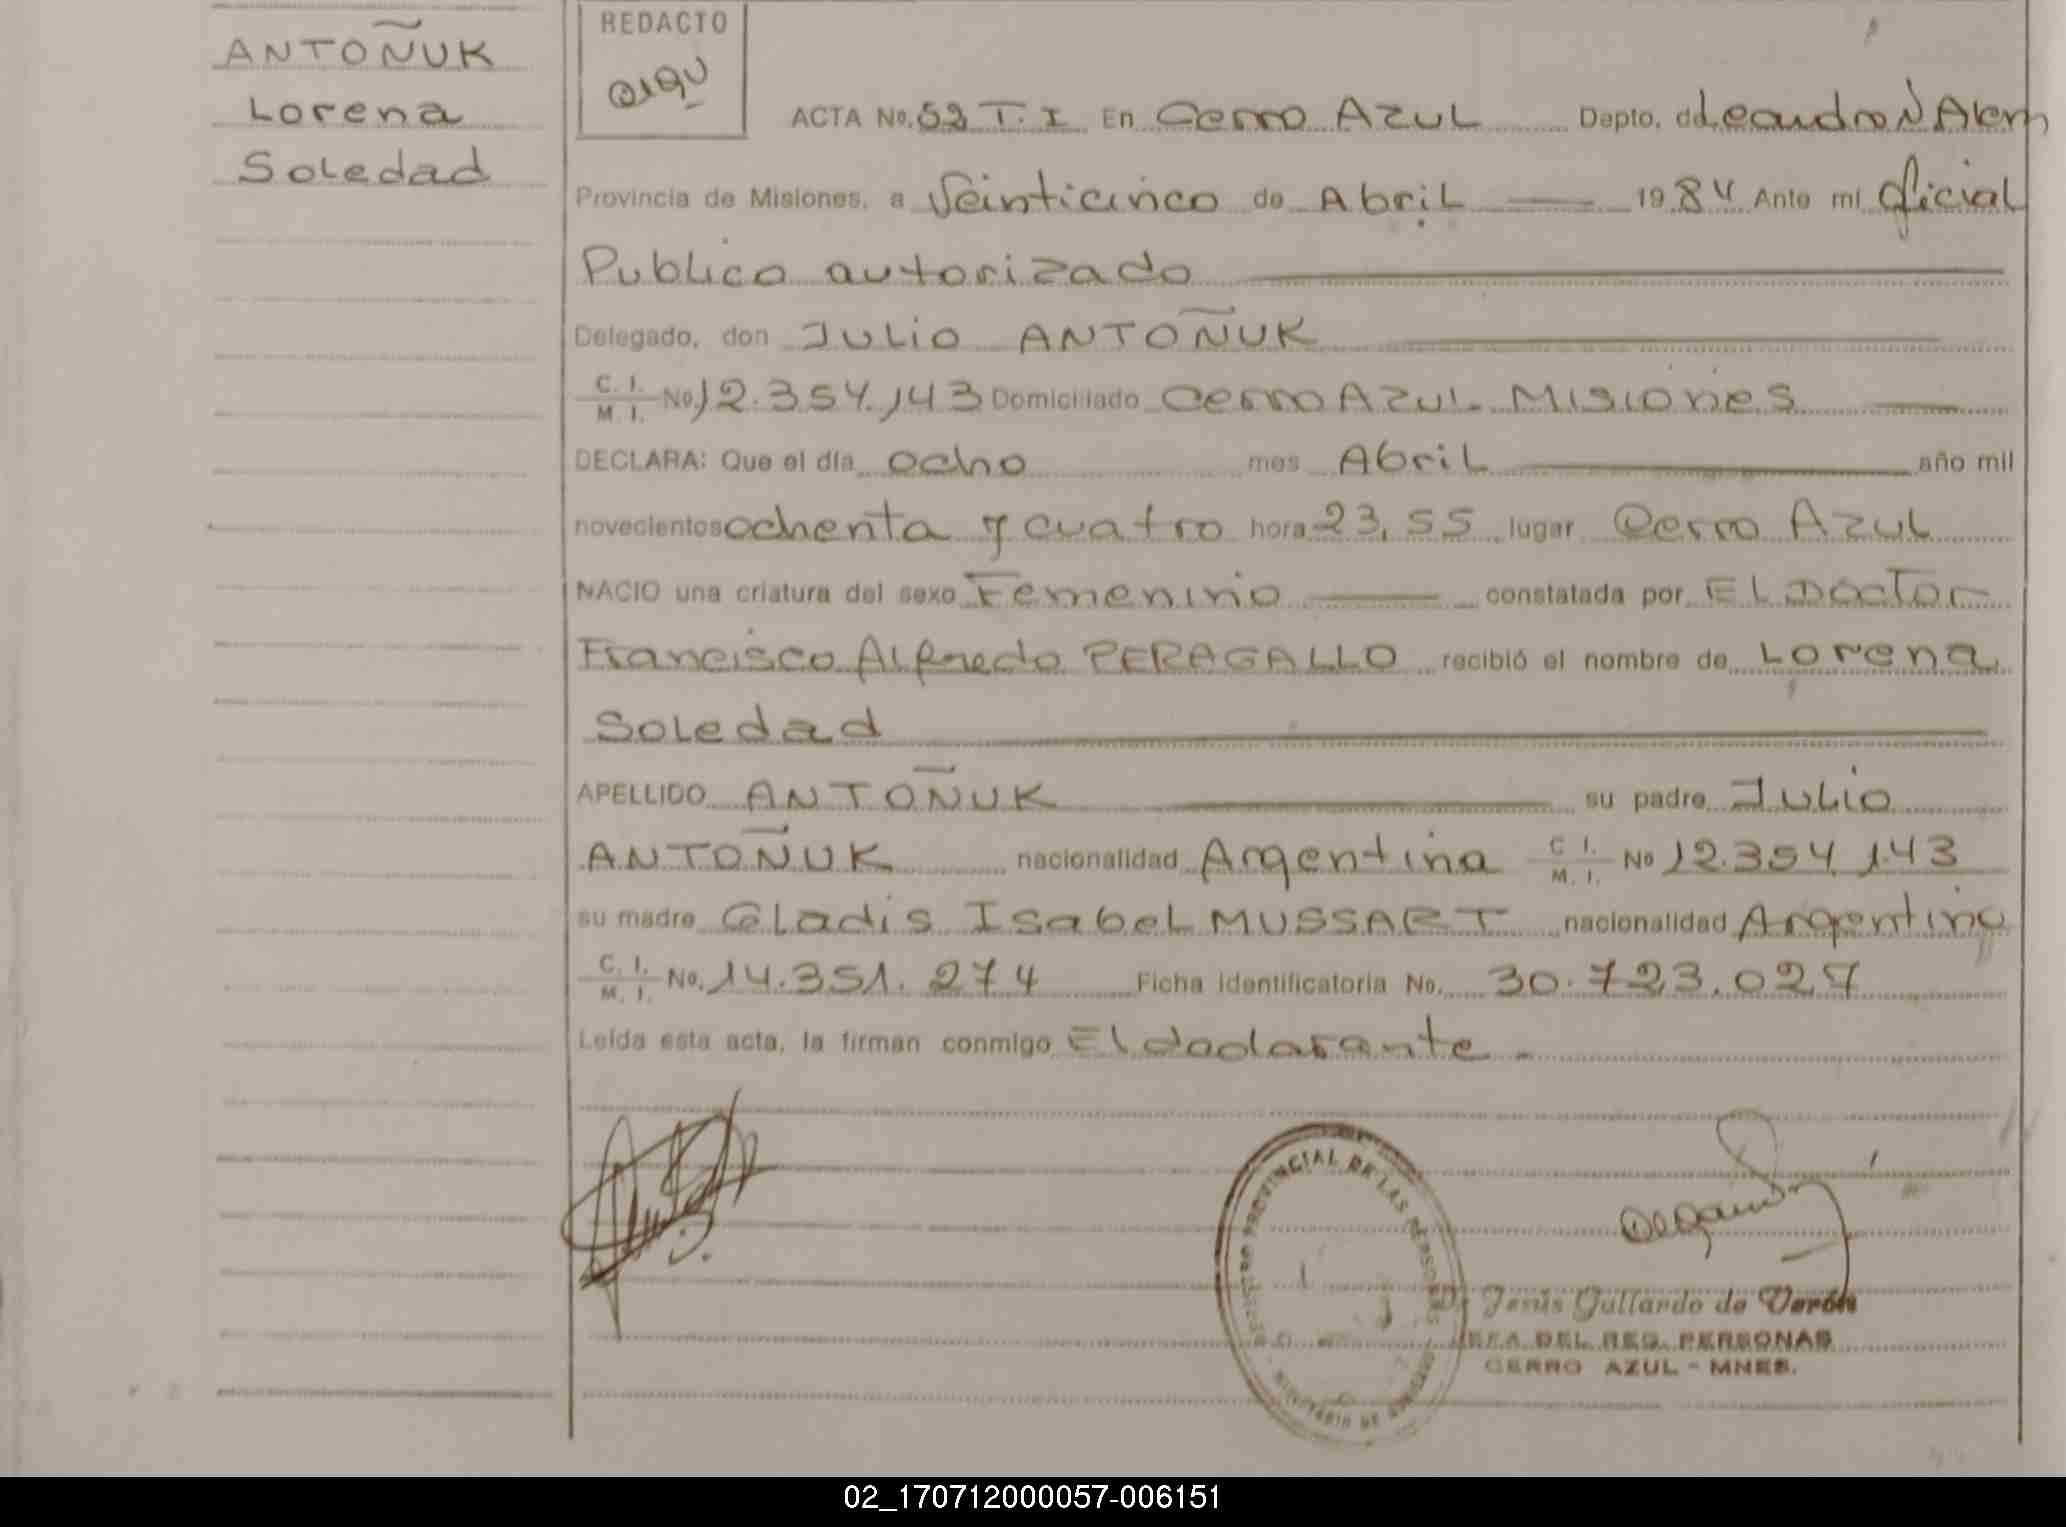 ANTOÑUK
Lorena
Soledad
REDACTO
ACTA No. 52 T. I En Cerro AZUL Depto. d Leandro N Alem
Provincia de Misiones, a Veinticinco de Abril 1984 Ante mi oficial
Publico autorizado
Delegado, don JULIO ANTOÑUK
C. I. M. I. No 12.354.143 Domiciliado Cerro AZUL Misiones
DECLARA: Que el día ocho mes Abril año mil
novecientos ochenta y cuatro hora 23,55 lugar Cerro AZUL
NACIO una criatura del sexo Femenino constatada por El Doctor
Francisco Alfredo PERAGALLO recibió el nombre de Lorena
Soledad
APELLIDO ANTOÑUK su padre Julio
ANTOÑUK nacionalidad Argentina C I. M. I. No 12.354.143
su madre Gladis Isabel MUSSART nacionalidad Argentina
C. I. M. I. No. 14.351.274 Ficha identificatoria No. 30.723.027
Leída esta acta, la firman conmigo El declarante
REGISTRO PROVINCIAL DE LAS PERSONAS
MINISTERIO DE GOBIERNO
Jesús Gallardo de Verón
JEFA DEL REG. PERSONAS
CERRO AZUL - MNES.
02_170712000057-006151